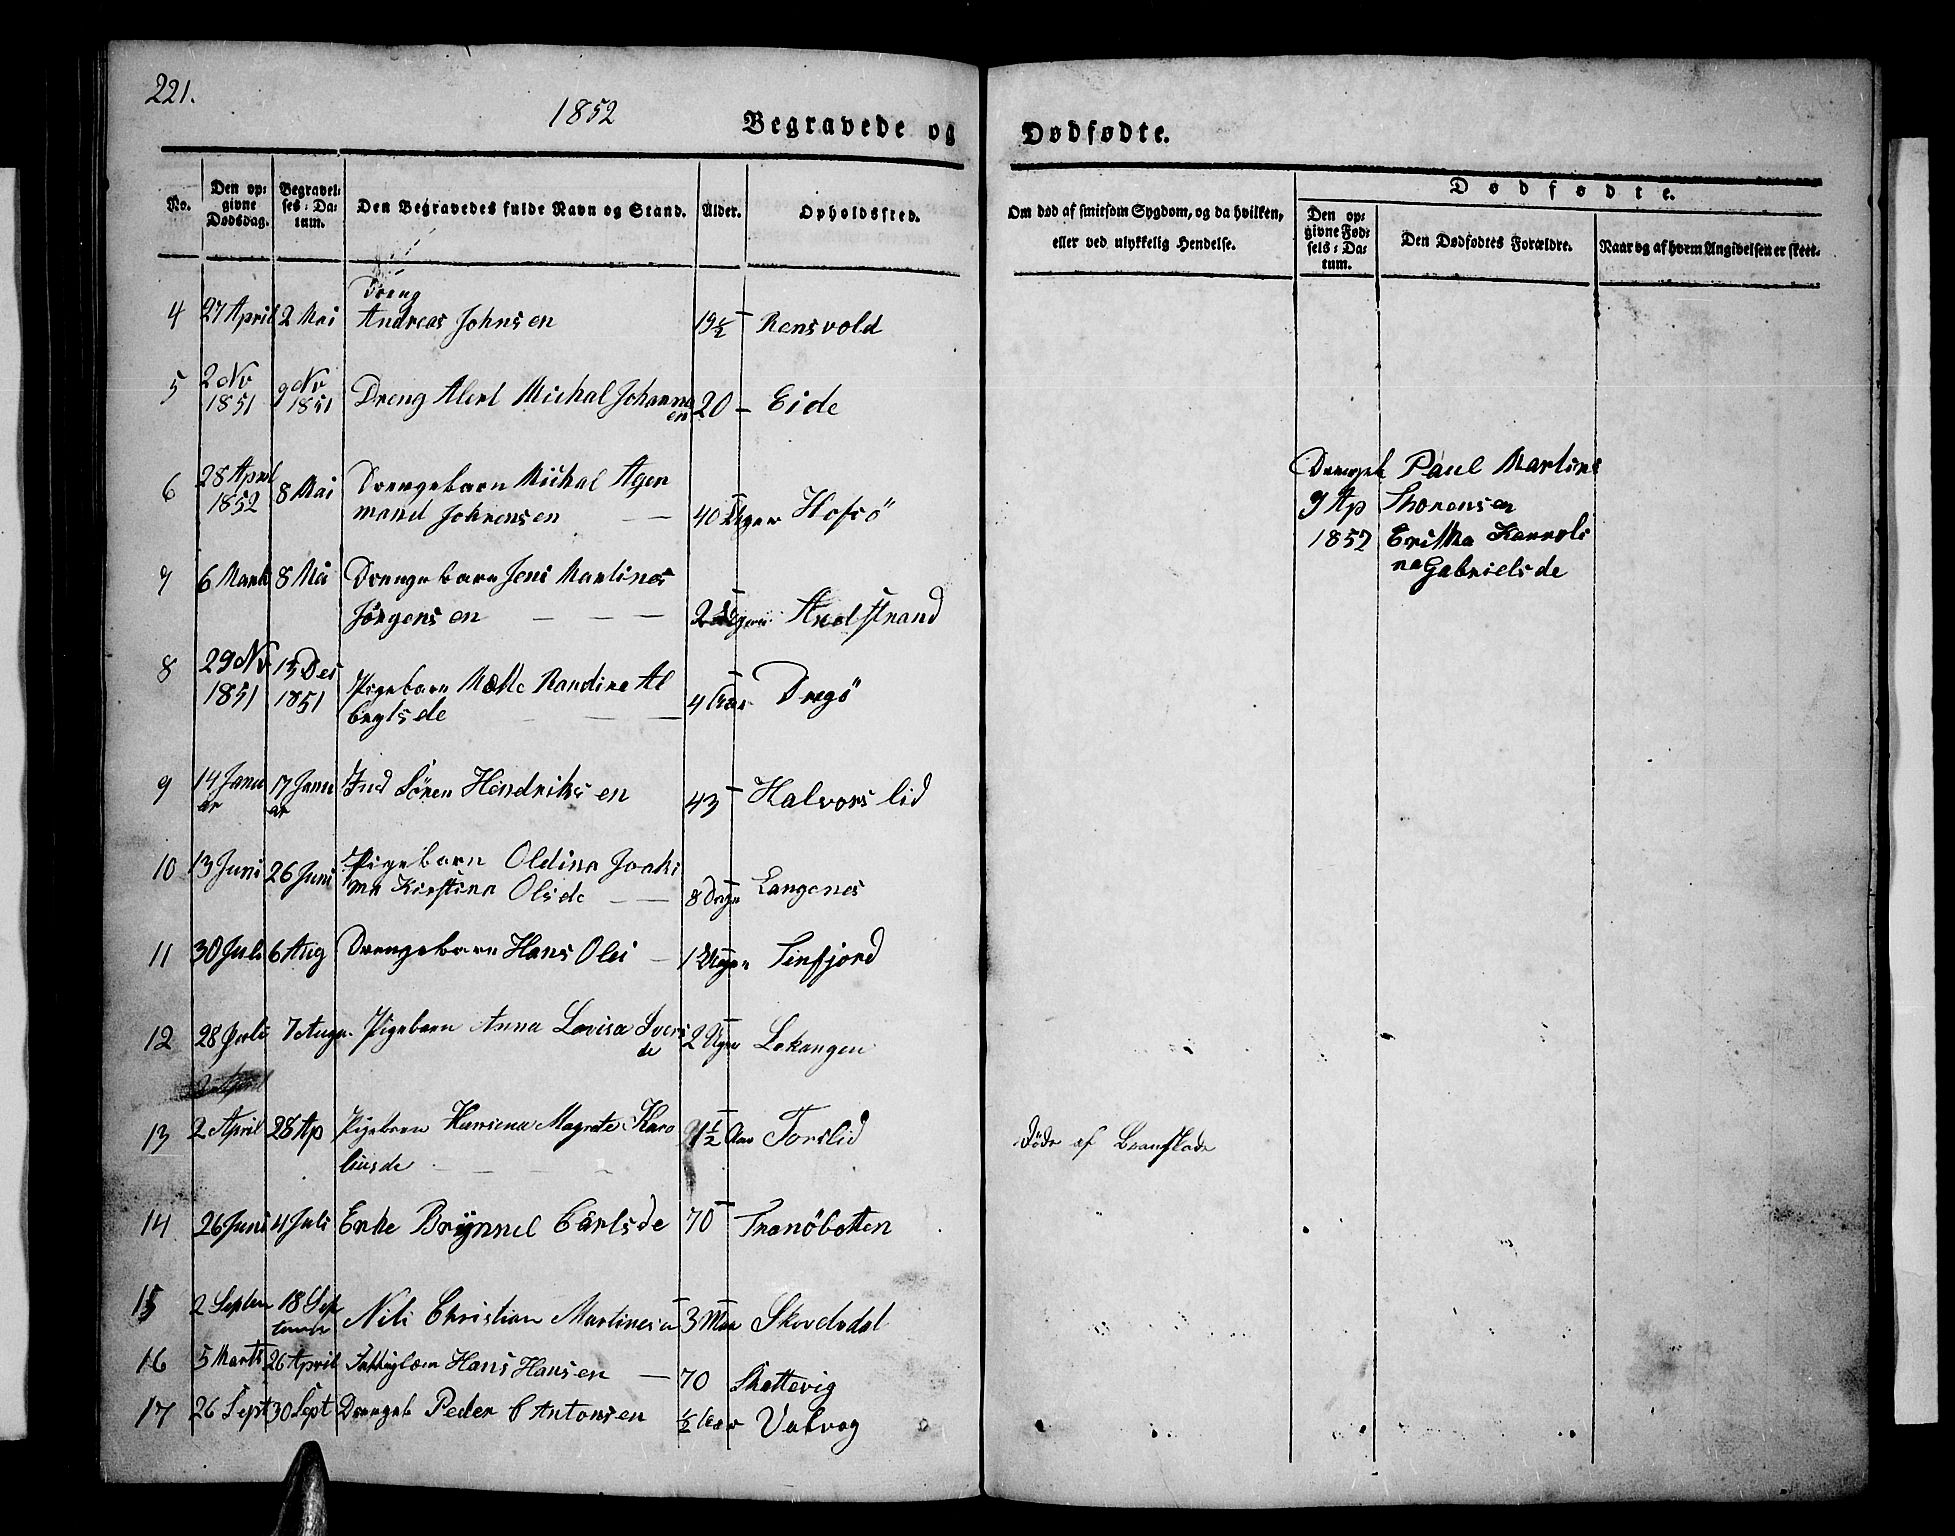 221.
1852
Begravede og Dødfødte.
No.
Den opgivne Dødsdag.
Begravelses-Datum.
Den Begravedes fulde Navn og Stand.
Alder.
Opholdssted.
Om død af smitsom Sygdom, og da hvilken, eller ved ulykkelig Hendelse.
Dødfødte.
Den opgivne Fødsels-Datum.
Den Dødfødtes Forældre.
Naar og af hvem Angivelsen er skeet.
Dreng
4 27 April 2 Mai Andreas Johnsen 19½ Rensvold
5 2 Nv 1851 9 Nv 1851 Dreng Alert Michal Johannesen 20 - Eide
6 28 April 1852 8 Mai Drengebarn Michal Agen
mand Johrensen 40 Uger Hofsö
Drengeb Paul Martins
9 Ap Thorensen
1852 Erikka Karroli
na Gabrielsde
7 6 Marts 8 Mai Drengebarn Jens Martines
Jörgensen 2 Strand
8 29 Nv 1851 15 Des 1851 Pigebarn Mette Randine Al
bregtsde 4 Aar Dragö
9 14 Januar 17 Januar Ind Sören Hendriksen 43 Halvorslid
10 13 Juni 26 Juni Pigebarn Oldina Joaki
ma Kirstina Olsde 8 Dage Langenes
11 30 Juli 6 Aug Drengebarn Hans Olei 1 Uger Finfjord
12 28 Juli 7 Aug Pigebarn Anna Lovisa Iversde 2 Uger Lekangen
13 2 April 28 Ap Pigebarn Hansena Magrete Karo
liusde 1½ Aar Torslid Döde af Brandskade
14 26 Juni 4 Juli Enke Brynnel Carlsde 70 Tranöbotten
15 2 Septem 18 Sep
tember Nils Christian Martinesen 3 Maa Skovdedal
16 5 Marts 26 April Fattiglem Hans Hansen 70 Skattevig
17 26 Sept 30 Sept Drengeb Peder C Antonsen ½ Aar Vatvog